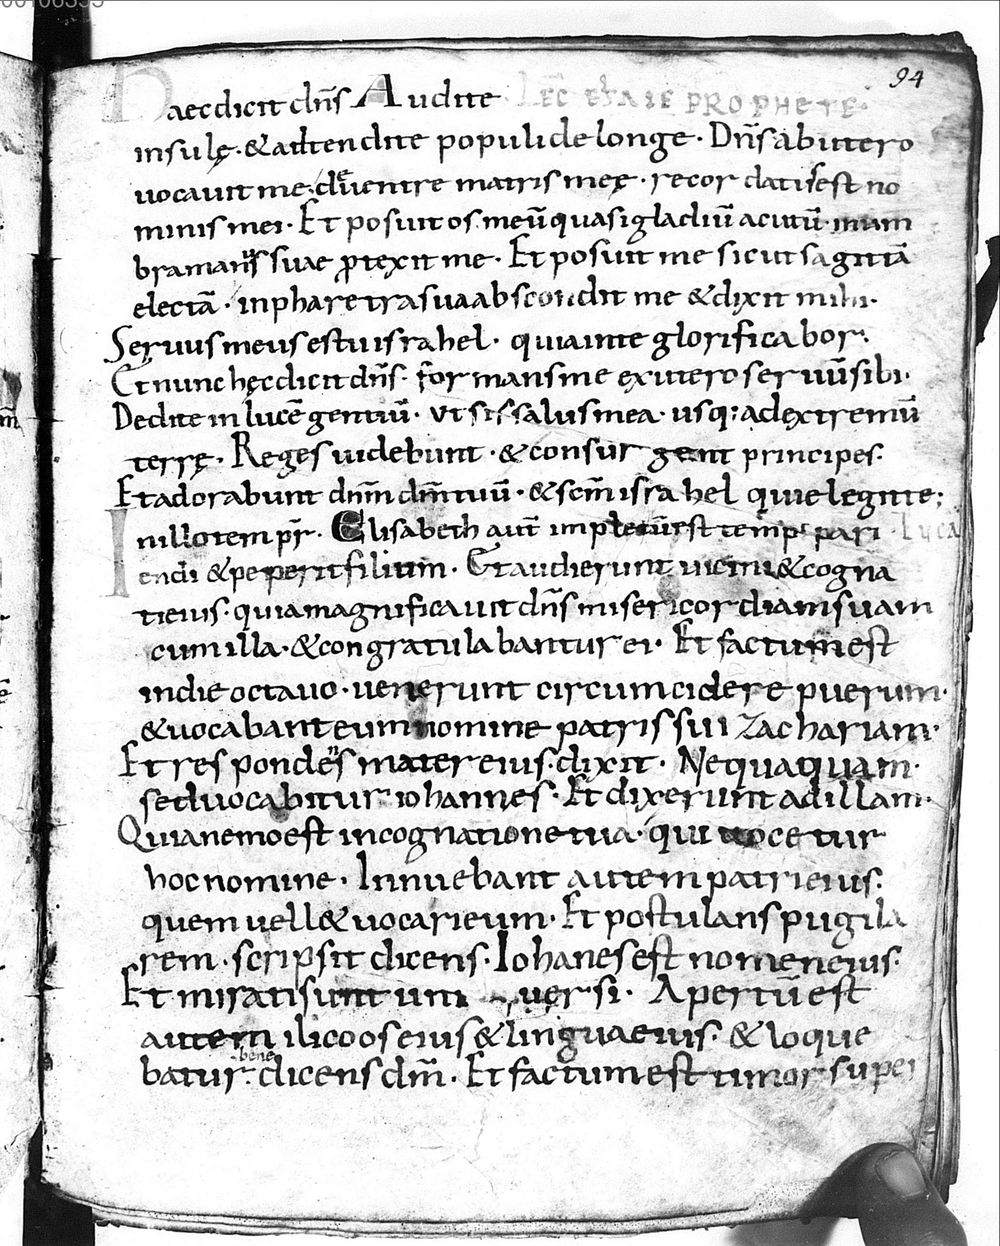 94
Haec dicit dn̄s Audite Lec̄ esaie prophete·
insulę· & adtendite populi de longe· Dn̄s ab utero
uocauit me· de uentre matris meę· recordatus est no
minis mei· Et posuit os meū quasi gladiū acutū· inum
bra manus suae protexit me· Et posuit me sicut sagittā
electā· in pharetra sua abscondit me & dixit mihi·
Seruus meus es tu israhel· quia in te glorificabor·
Et nunc hęc dicit dn̄s· formans me ex utero seruū sibi·
Dedi te in lucē gentiū· ut sis salus mea· usq: ad extremū
terrę· Reges uidebunt· & consurgent principes·
Et adorabunt dn̄m dm̄ tuū· & sc̄m israhel qui elegit te;
In illo tempr̄· Elisabeth aut̄ impletū est temp' pari Luca
endi & peperit filium· Et audierunt uicini & cogna
ti eius· quia magnificauit dn̄s misericordiam suam
cum illa· & congratulabantur ei· Et factum est
in die octauo· uenerunt circumcidere puerum·
& uocabant eum nomine patris sui Zachariam·
Et respondens mater eius· dixit· Nequaquam·
sed uocabitur iohannes· Et dixerunt ad illam·
Quia nemo est in cognatione tua· qui uocetur
hoc nomine· Innuebant autem patri eius·
quem uell& uocari eum· Et postulans pugila
rem· scripsit dicens· Iohanes est nomen eius·
Et mirati sunt uni uersi· Apertū est
autem ilico os eius & lingua eius· & loque
bene
batur· dicens dm̄· Et factum est timor super